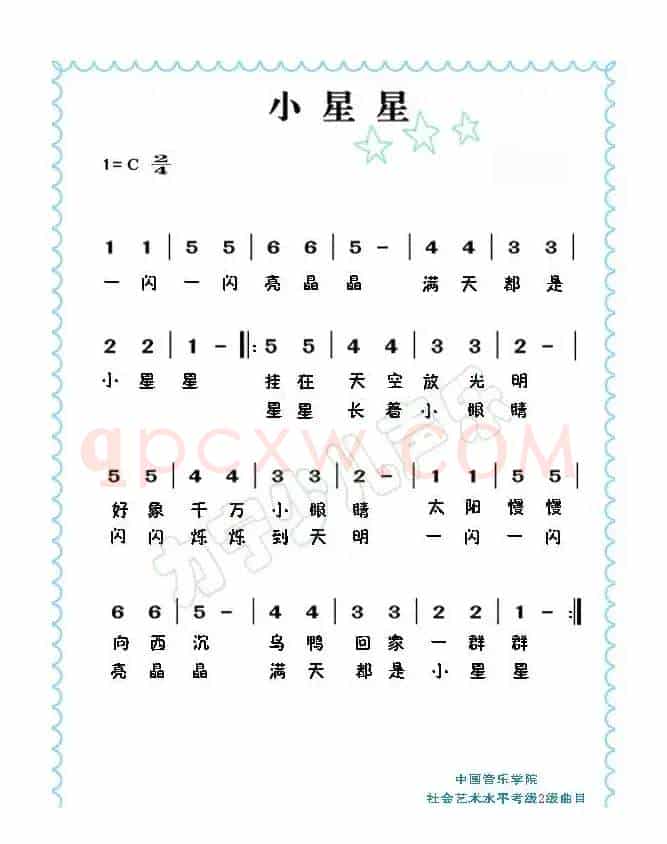 小星星
1=C 2/4
1 1 | 5 5 | 6 6 | 5 - | 4 4 | 3 3 |
一闪一闪亮晶晶 满天都是
2 2 | 1 - ‖: 5 5 | 4 4 | 3 3 | 2 - |
小星星 挂在天空放光明
星星长着小眼睛
qpcxw.COM
5 5 | 4 4 | 3 3 | 2 - | 1 1 | 5 5 |
好象千万小眼睛 太阳慢慢
闪闪烁烁到天明 一闪一闪
力宇少儿声乐
6 6 | 5 - | 4 4 | 3 3 | 2 2 | 1 - :‖
向西沉 乌鸭回家一群群
亮晶晶 满天都是小星星
中国音乐学院
社会艺术水平考级2级曲目